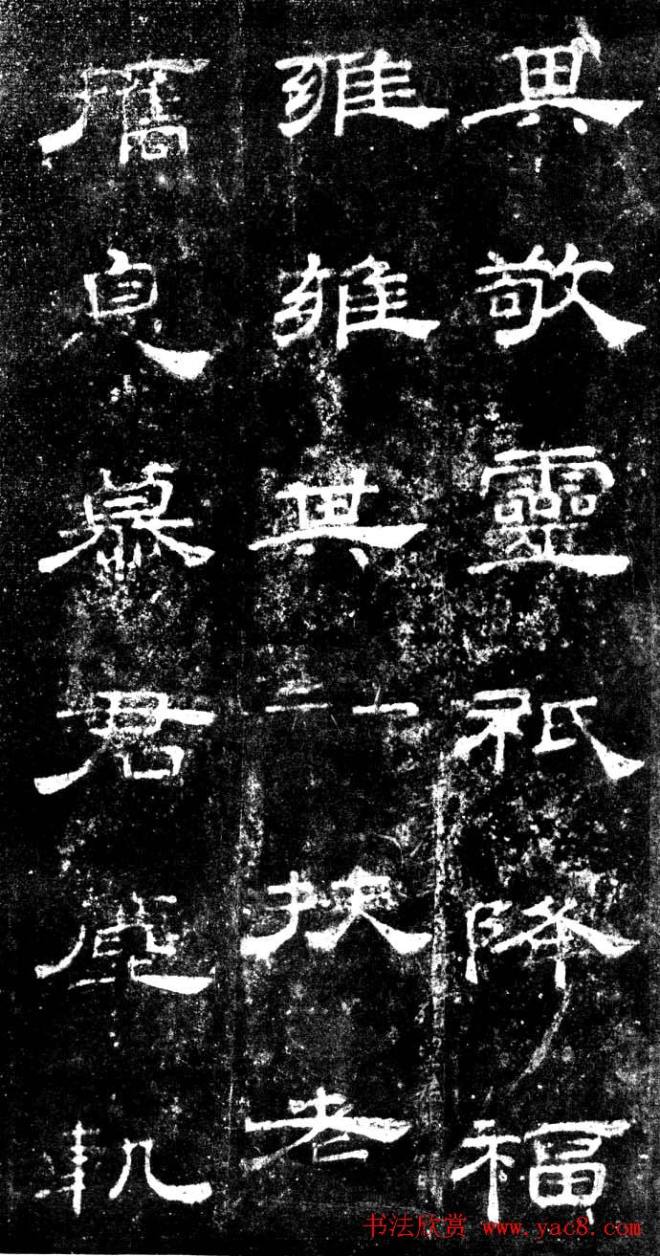 異敬靈祗降福
雍雍其二扶老
攜息慕君塵軌
书法欣赏 www.yac8.com